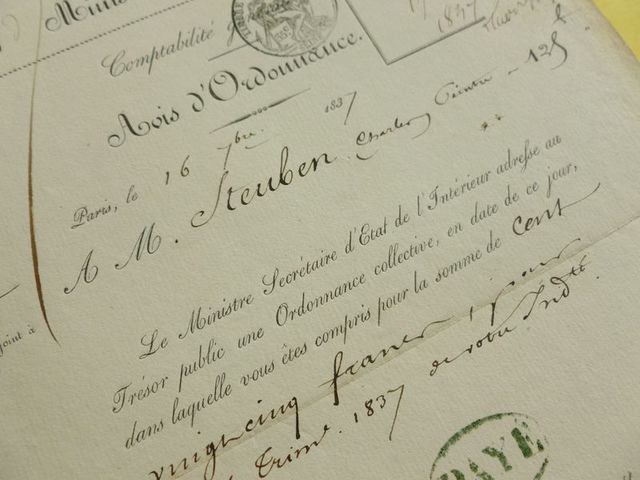 Comptabilité
1837
Avis d'Ordonnance.
Paris, le 16 7bre 1837
A M. Steuben Charles Peintre 125 f
Le Ministre Secrétaire d'État de l'Intérieur adresse au
Trésor public une Ordonnance collective, en date de ce jour,
dans laquelle vous êtes compris pour la somme de cent
vingtcinq francs, pour
joint à
Trim. 1837 de votre Indté.
PAYÉ